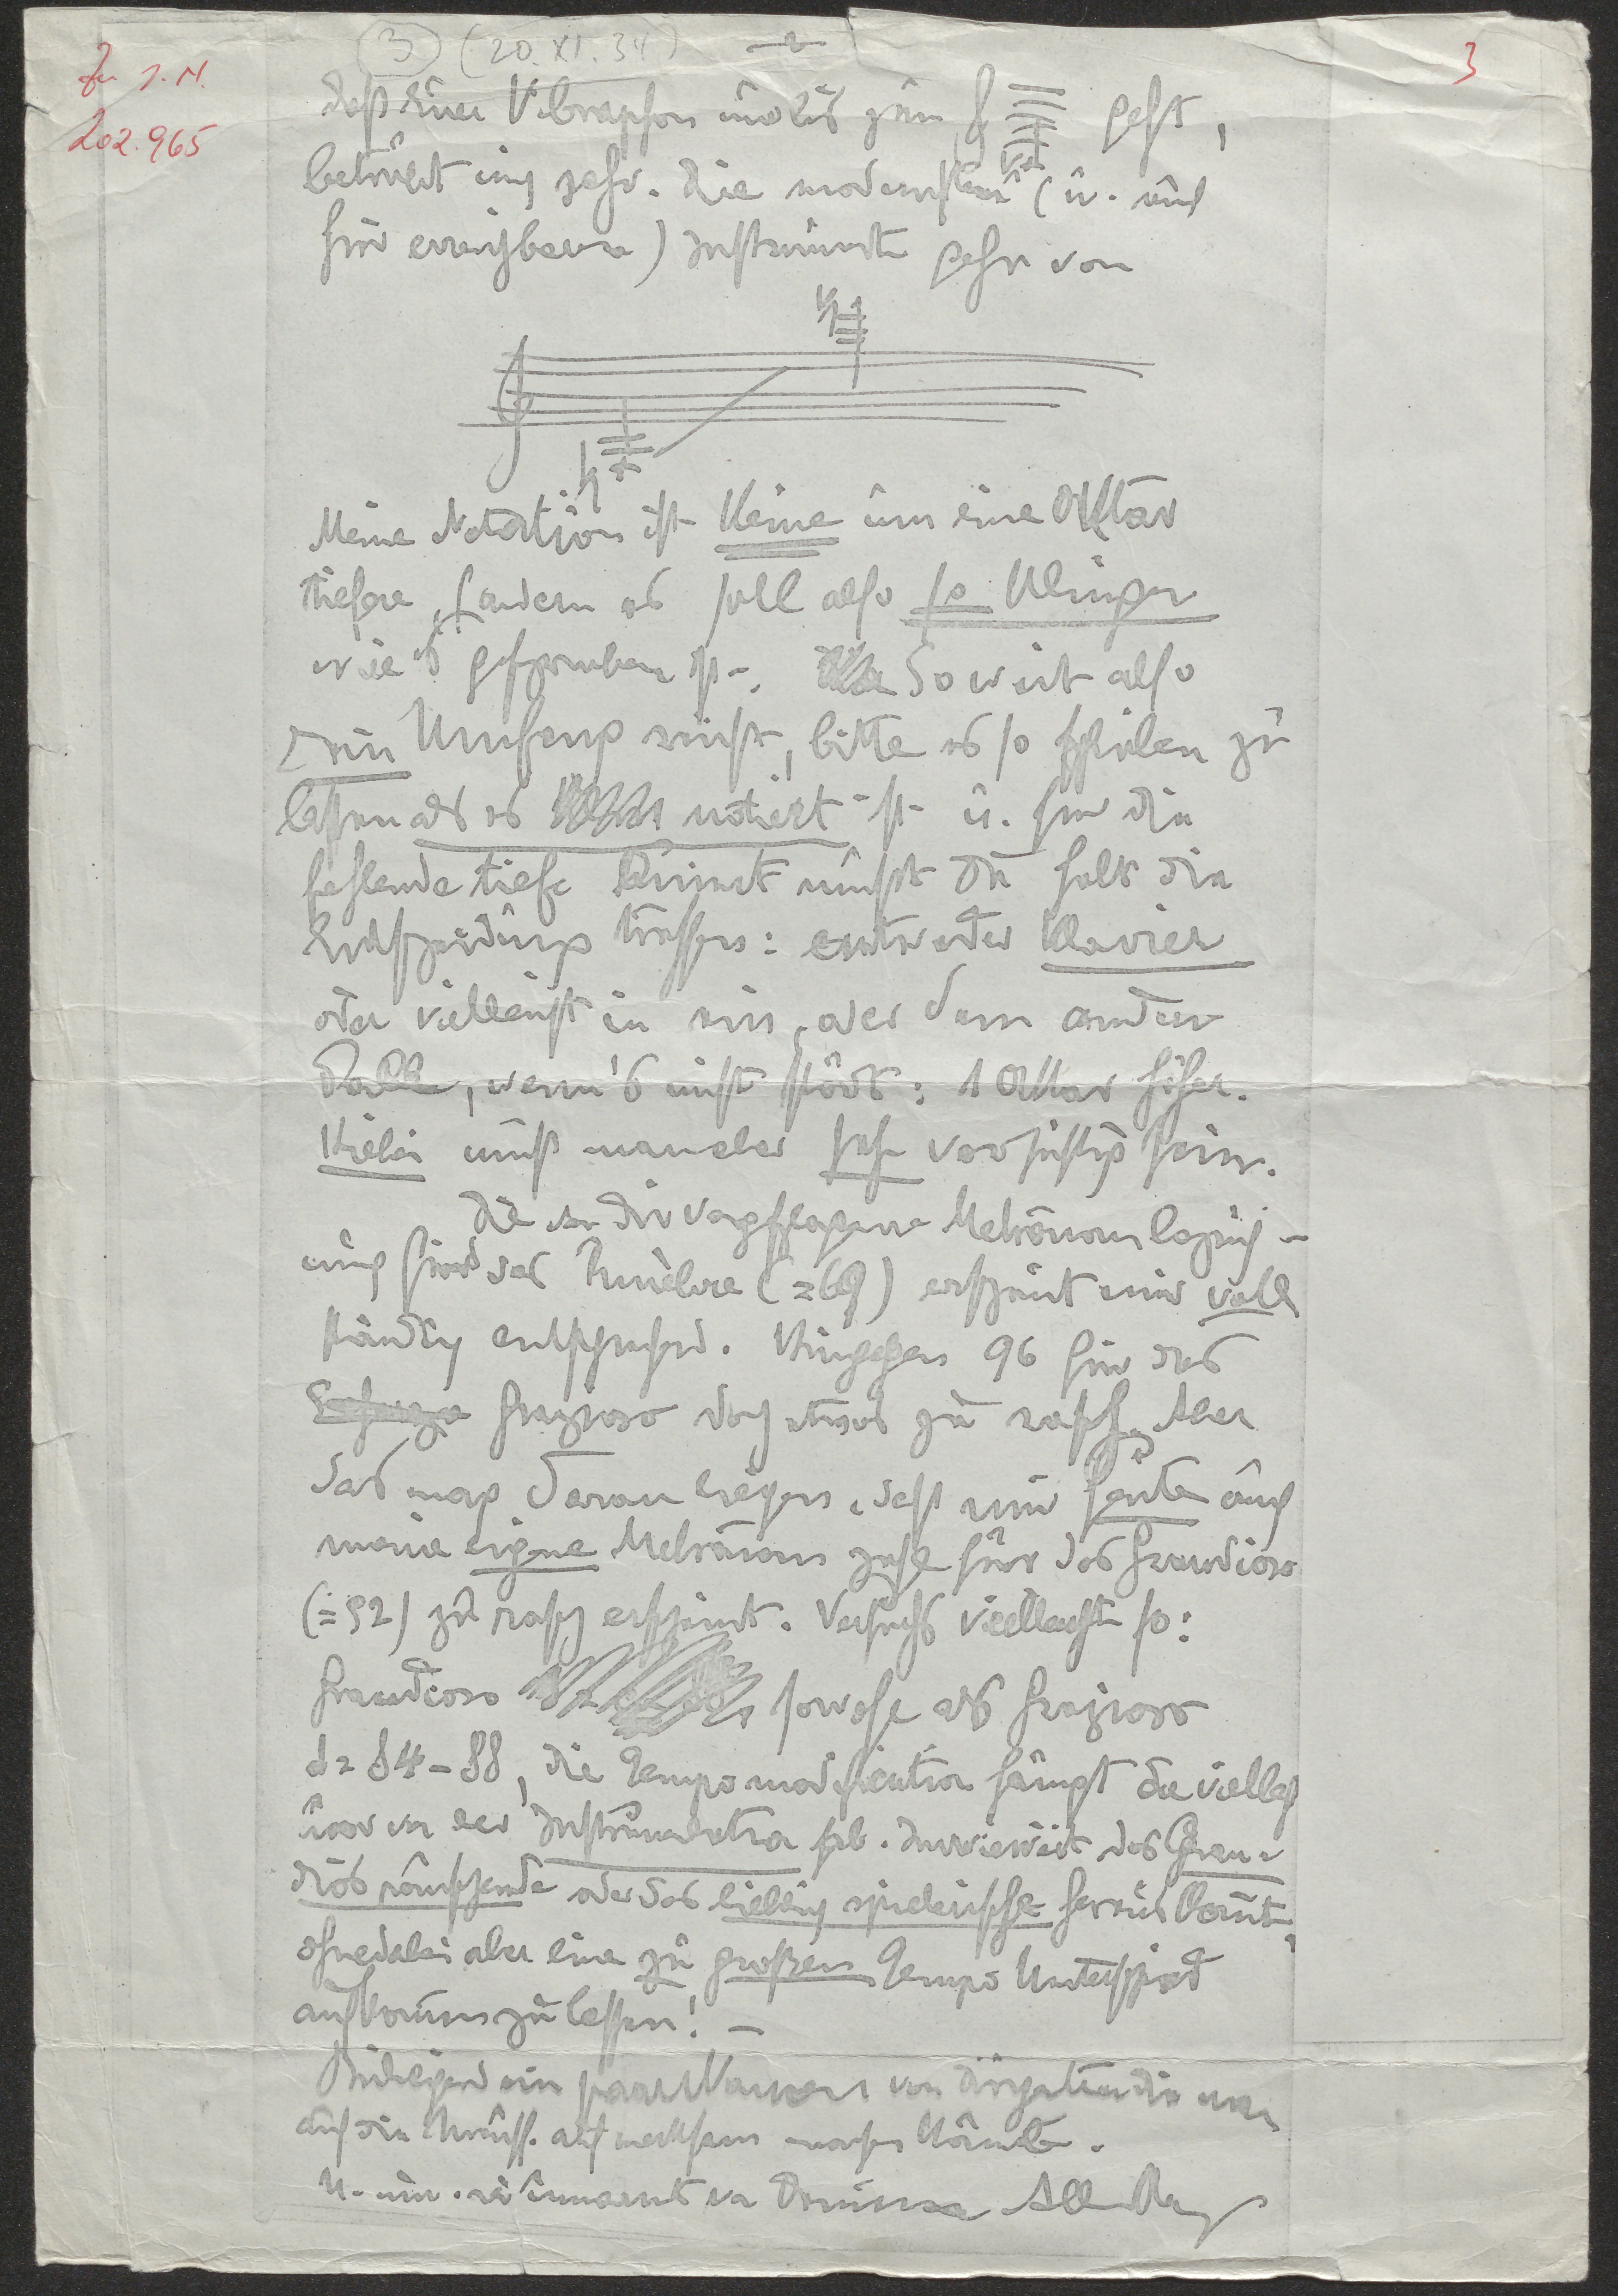 Zu I.N.
202.965
3 (20.XI.34)
3
daß Euer Vibraphon nur bis zum geht,
betrübt mich sehr. Die modernsten (u. auch
hier erreichbaren) Instrumente gehn von
Meine Notation ist keine um eine Oktav
tiefere, sondern es soll also so klingen
wie es geschrieben ist. Soweit also
Dein Umfang reicht, bitte es so spielen zu
lassen als es notiert ist u. für die
fehlende tiefe mußt Du halt die
Entscheidung treffen: entweder Klavier
oder vielleicht in ein oder dem andern
Falle, wenn's nicht stört: 1 Oktav höher.
Hiebei muß man aber sehr vorsichtig sein.
Die von Dir vorgeschlagene Metronombezeich-
nung für das Funèbre (=69) erscheint mir voll
ständig entsprechend. Hingegen 96 für das
Grazioso doch etwas zu rasch. Aber
das mag daran liegen, daß mir heute auch
meine eigne Metronomzahl für das Grandioso
(=92) zu rasch erscheint. Versuchs vielleicht so:
Grandioso sowohl als Grazioso
= 84-88, die Tempomodification hängt da vielleicht
nur von der Instrumentation ab. Inwieweit das Gran-
dios rauschende oder das lieblich spielerische herauskommt,
ohne dabei aber einen zu großen Tempo Unterschied
aufkommen zu lassen! –
Beiliegend ein paar Namen von Dirigenten die man
auf die aufmerksam machen könnte.